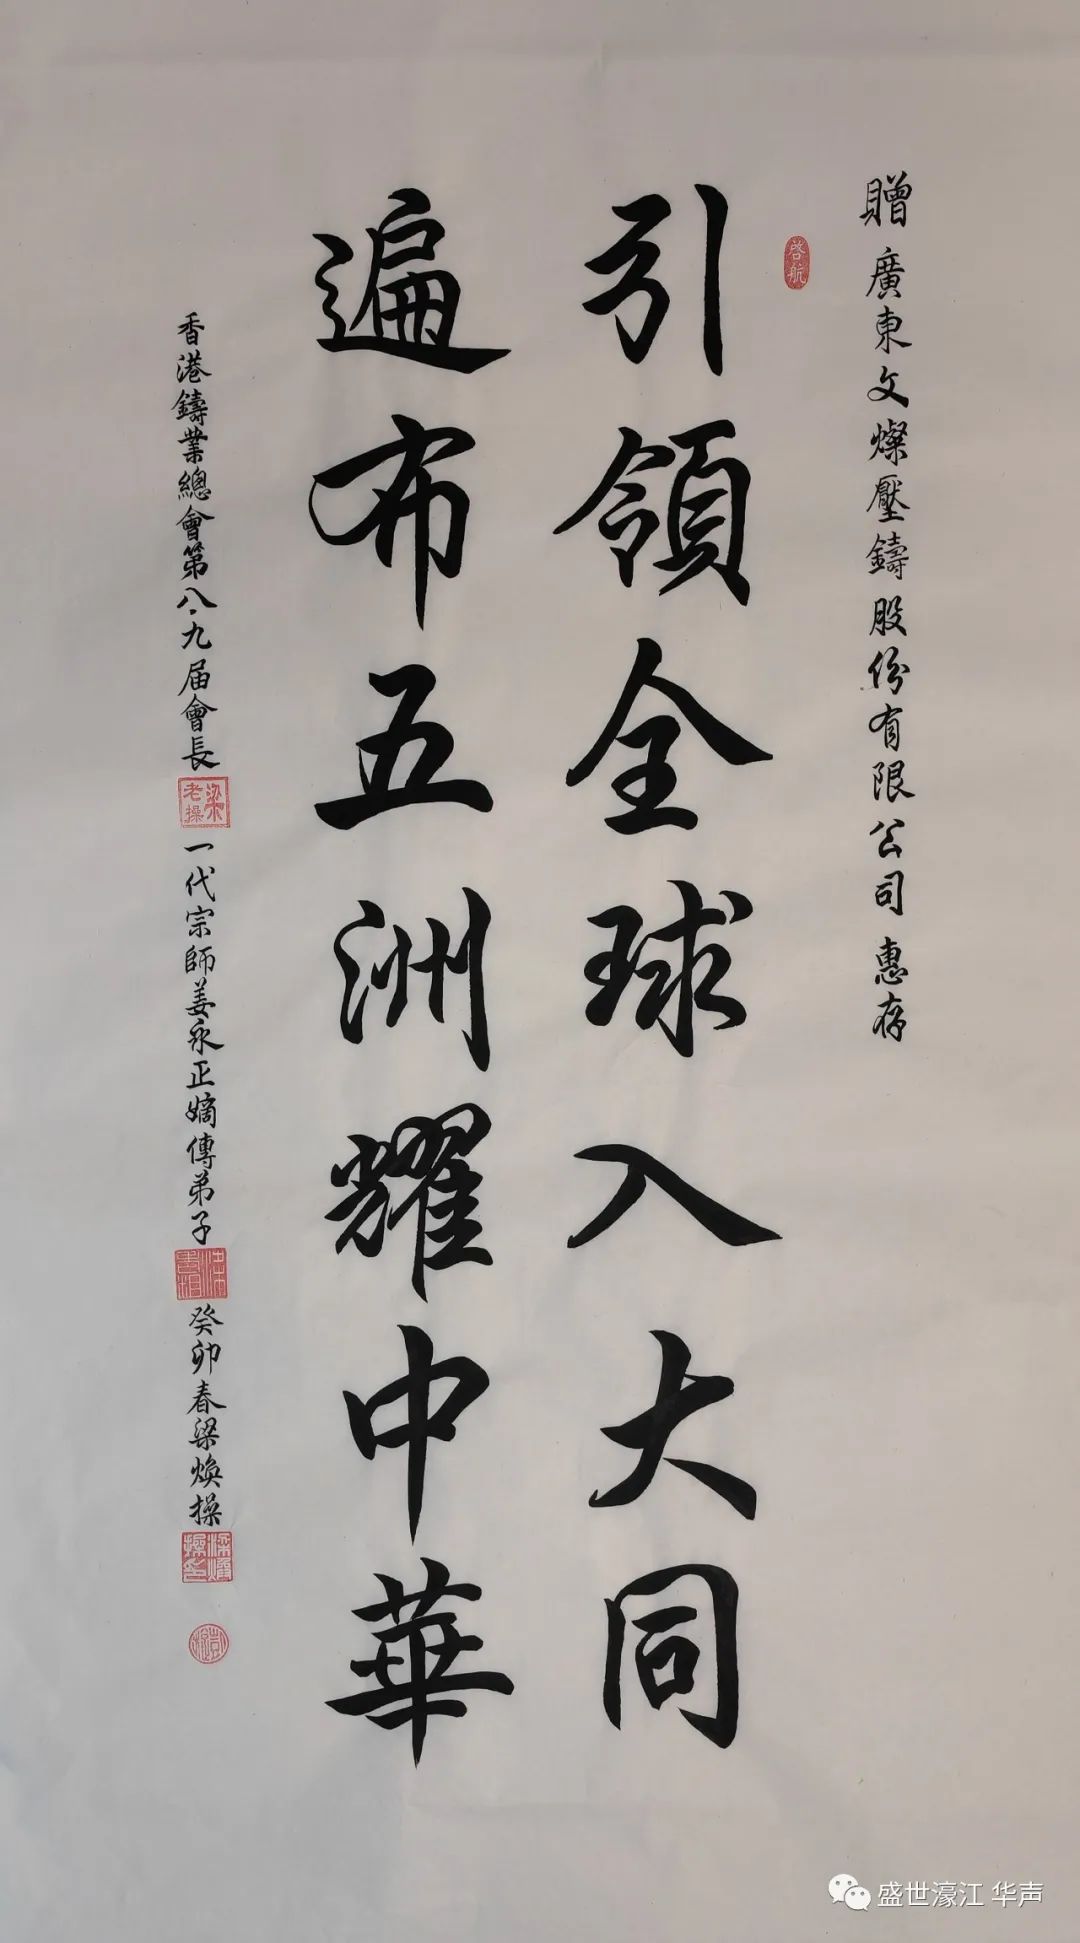 贈 廣東文燦壓鑄股份有限公司 惠存
啓航
引領全球入大同
遍布五洲耀中華
香港鑄業總會第八、九届會長
梁老操
一代宗師姜永正嫡傳弟子
癸卯春梁煥操
盛世濠江 华声